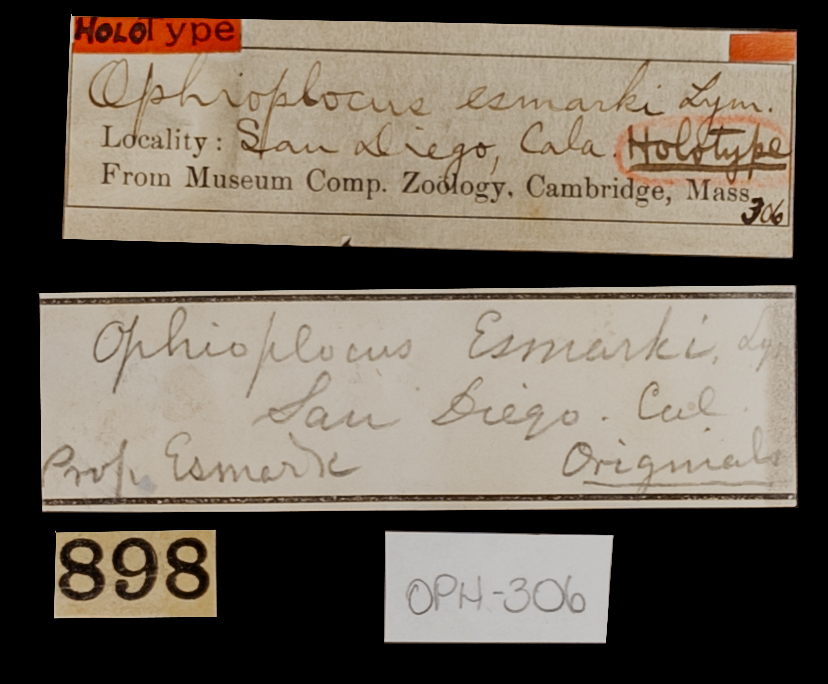 HOLOType
Ophioplocus esmarki Lym.
Locality: San Diego, Cala. Holotype
From Museum Comp. Zoölogy. Cambridge, Mass.
306
Ophioplocus Esmarki, Ly
San Diego. Cal.
Prof. Esmark Original
898
OPH-306